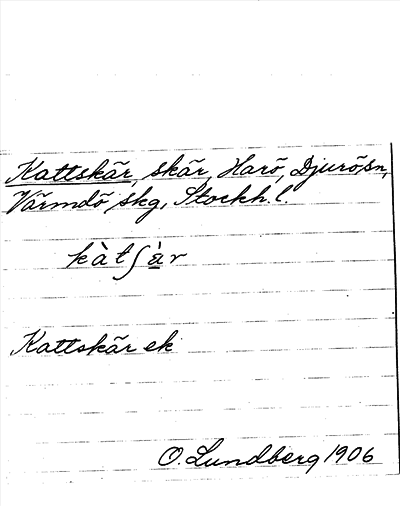 Kattskär, skär, Harö, Djurö sn,
Värmdö skg, Stockh. l.
kàtʃà̤r
Kattskär ek
O. Lundberg 1906